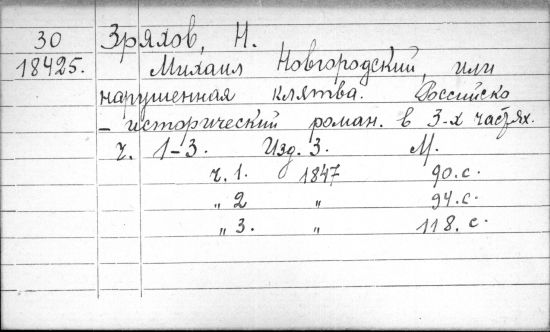 30 Зряхов, Н.
18425. Михаил Новгородский, или
нарушенная клятва. Российско
- исторический роман. в 3-х частях.
ч. 1-3. Изд. 3. М.
ч. 1. 1847 90. с.
„ 2 „ 94. с.
„ 3. „ 118. с.